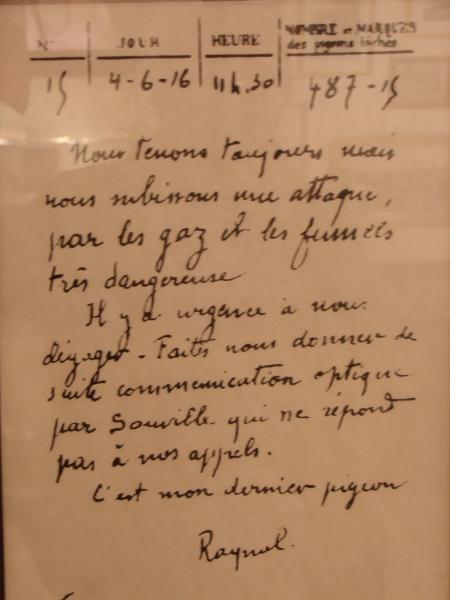 N° JOUR HEURE NOMBRE et MARQUES
des pigeons lâchés
15 4-6-16 11h.30 487-15
Nous tenons toujours mais
nous subissons une attaque,
par les gaz et les fumées
très dangereuse
Il y a urgence à nous
dégager - Faites nous donner de
suite communication optique
par Souville qui ne répond
pas à nos appels.
C'est mon dernier pigeon
Raynal.